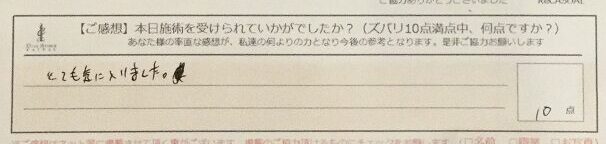 【ご感想】本日施術を受けられていかがでしたか？（ズバリ10点満点中、何点ですか？）
あなた様の率直な感想が、私達の何よりの力となり今後の参考となります。是非ご協力お願いします
とても気に入りました。
10 点